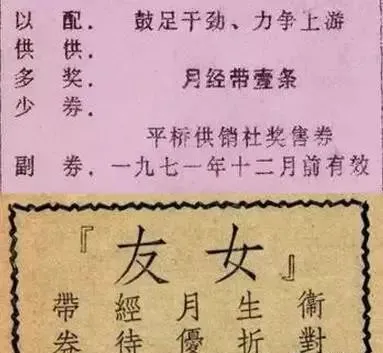 以配. 鼓足干劲、力争上游
供供.
多奖. 月经带壹条
少券.
平桥供销社奖售券
副券. 一九七一年十二月前有效
『女友』
衛生月經帶
對折優待券